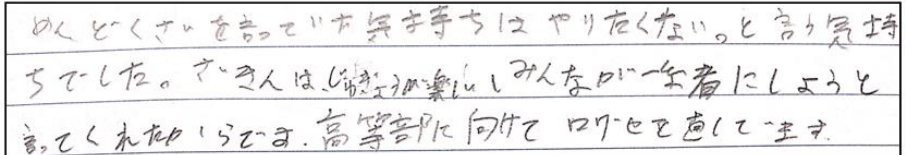 めんどくさいを言っていた気持ちはやりたくない。と言う気持
ちでした。さいきんは、じゅぎょうが楽しいしみんなが一緒にしようと
言ってくれたからです。高等部に向けて口グセを直しています。